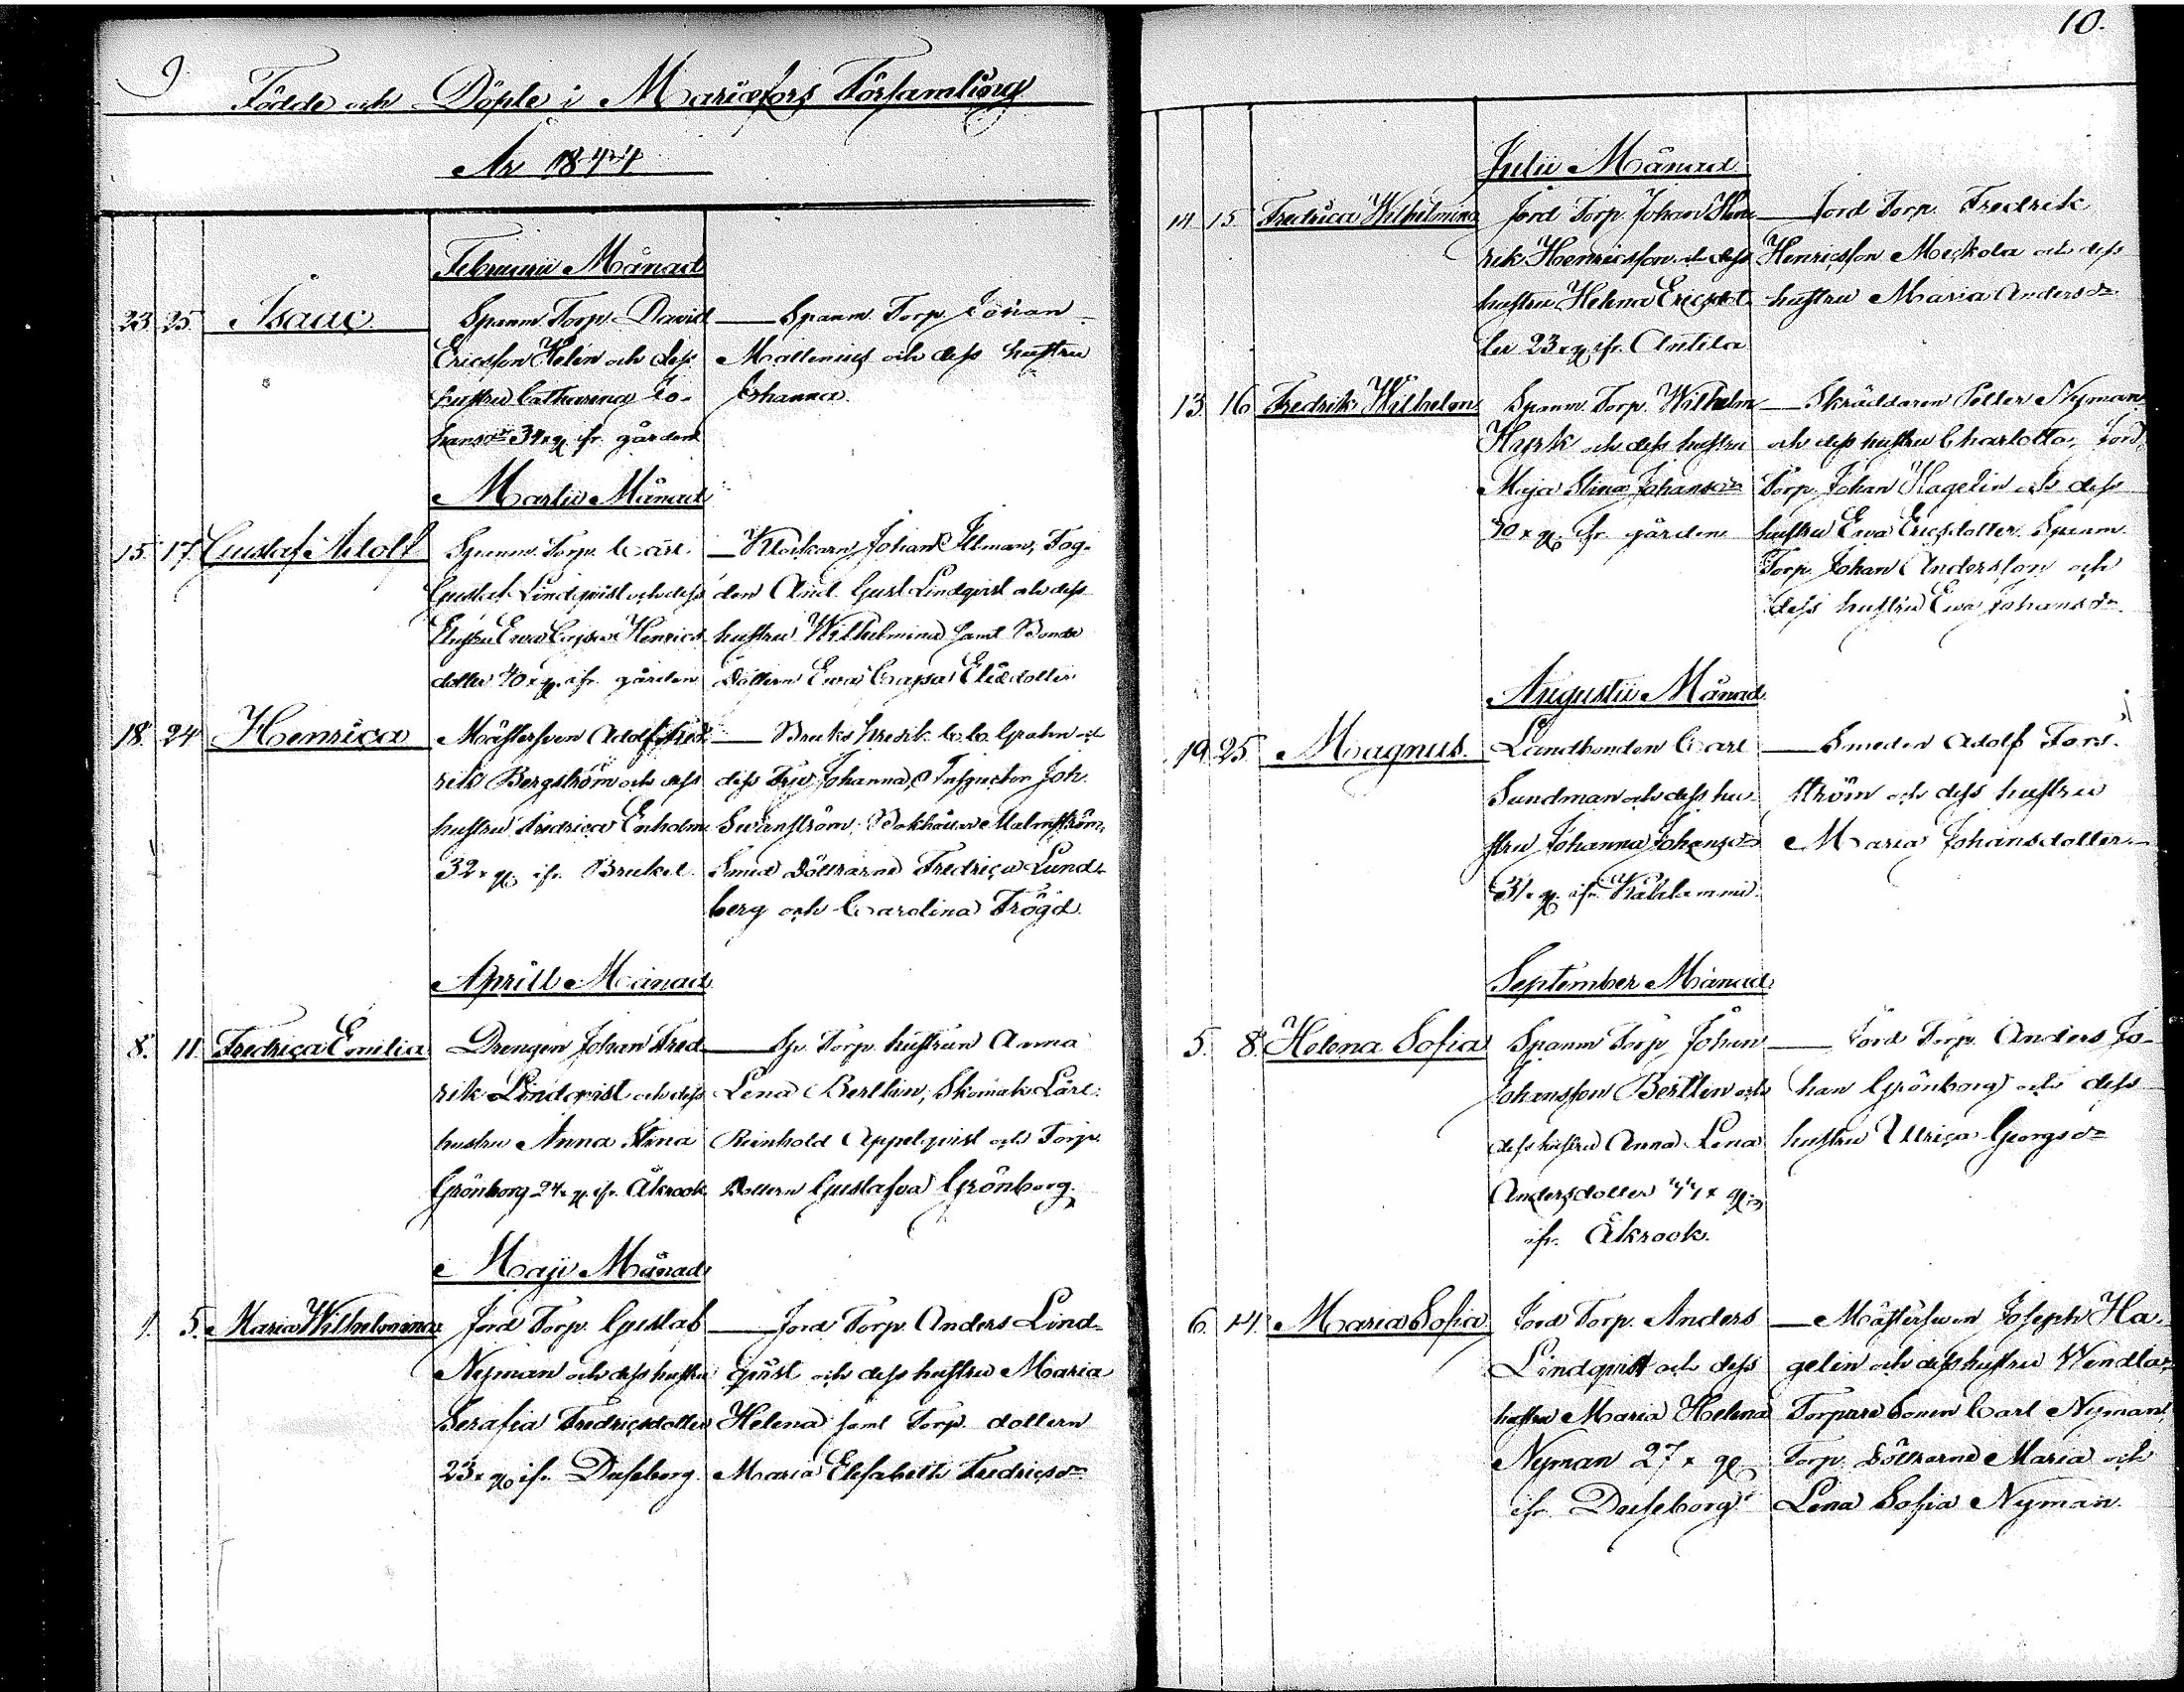 9.
Födde och Döpte i Mariæfors Församling
År 1844
Februarii Månad
23. 25. Isaac
Spanm. Torp. David
Ericsson Helin och dess
hustru Catharina Jo-
hansdr 34 x qv. ifr. gården
— Spanm. Torp. Johan
Mallenius och dess hustru
Johanna.
Martii Månad
15. 17. Gustaf Adolf
Spanm. Torp. Carl
Gustaf Lindqvist och dess
Hustru Ewa Cajsa Henrics
dotter 40 x qv. ifr. gården
— Klockarn Johan Illman, Fog-
den And. Gust. Lindqvist och dess
hustru Wilhelmina samt Bonde
Dottern Ewa Cajsa Eliædotter
18. 24. Henrica
Mästersven Adolf Fred-
rik Bergström och dess
hustru Fredrica Enholm
32 x qv. ifr. Bruket.
— Bruks C. C. Grahn och
dess Fru Johanna, Inspector Joh.
Swanström, Bokhållar Malmström,
Smed Döttrarne Fredrica Lund-
berg och Carolina Trögd.
Aprill Månad
8. 11. Fredrica Emilia
Drengen Johan Fred-
rik Lindqvist och dess
hustru Anna Stina
Grönborg 24 x qv. ifr. Åkrook
— Sp. Torp. hustrun Anna
Lena Berllin, Skomak. Lärl.
Reinhold Appelqvist och Torp.
Dottern Gustafva Grönborg.
Maji Månad
1. 5. Maria Wilhelmina
Jord Torp. Gustaf
Nyman och dess hustru
Serafia Fredricsdotter
23 x qv. ifr. Dufeborg.
— Jord Torp. Anders Lind-
qvist och dess hustru Maria
Helena samt Torp. dottern
Maria Elisabeth Fredricsdr
10.
Julii Månad
14 15. Fredrica Wilhelmina
Jord Torp. Johan Hen-
rik Henricsson och dess
hustru Helena Ericsdot-
ter 23 x qv. ifr. Antila
— Jord Torp. Fredrik
Henricsson Meskola och dess
hustru Maria Andersdr
13. 16 Fredrik Wilhelm
Spanm. Torp. Wilhelm
Hyrk och dess hustru
Maja Stina Johansdr
40 x qv. ifr. gården
— Skräddaren Petter Nyman
och dess hustru Charlotta, Jord
Torp. Johan Hagelin och dess
hustru Ewa Ericsdotter. Spanm.
Torp. Johan Andersson och
dess hustru Ewa Johansdr
Augustii Månad
19. 25. Magnus.
Landbonden Carl
Sundman och dess hu-
stru Johanna Johansdr
31 x qv. ifr.
— Smeden Adolf Fors-
ström och dess hustru
Maria Johansdotter.—
September Månad
5. 8. Helena Sofia
Spanm Torp. Johan
Johansson Berllin och
dess hustru Anna Lena
Andersdotter 44 x qv.
ifr. Åkrook.
— Jord Torp. Anders Jo-
han Grönborg och dess
hustru Ulrica Georgsdr
6. 14. Maria Sofia
Jord Torp. Anders
Lindqvist och dess
hustru Maria Helena
Nyman 27 x qv.
ifr. Dufeborg
— Mästersven Joseph Ha-
gelin och dess hustru Wendla,
Torpare Sonen Carl Nyman,
Torp. Döttrarne Maria och
Lena Sofia Nyman.